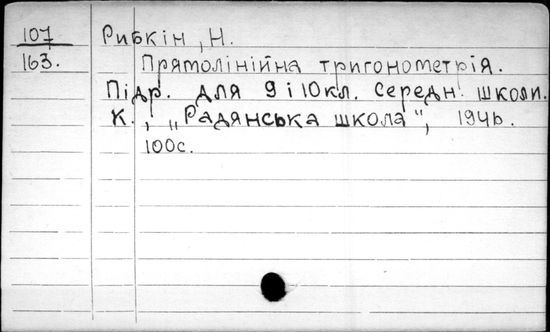 107
163.
Рибкін, Н.
Прямолінійна тригонометрія.
Підр. для 9 і 10 кл. середн. школи.
К., „Радянська школа", 1946.
100с.